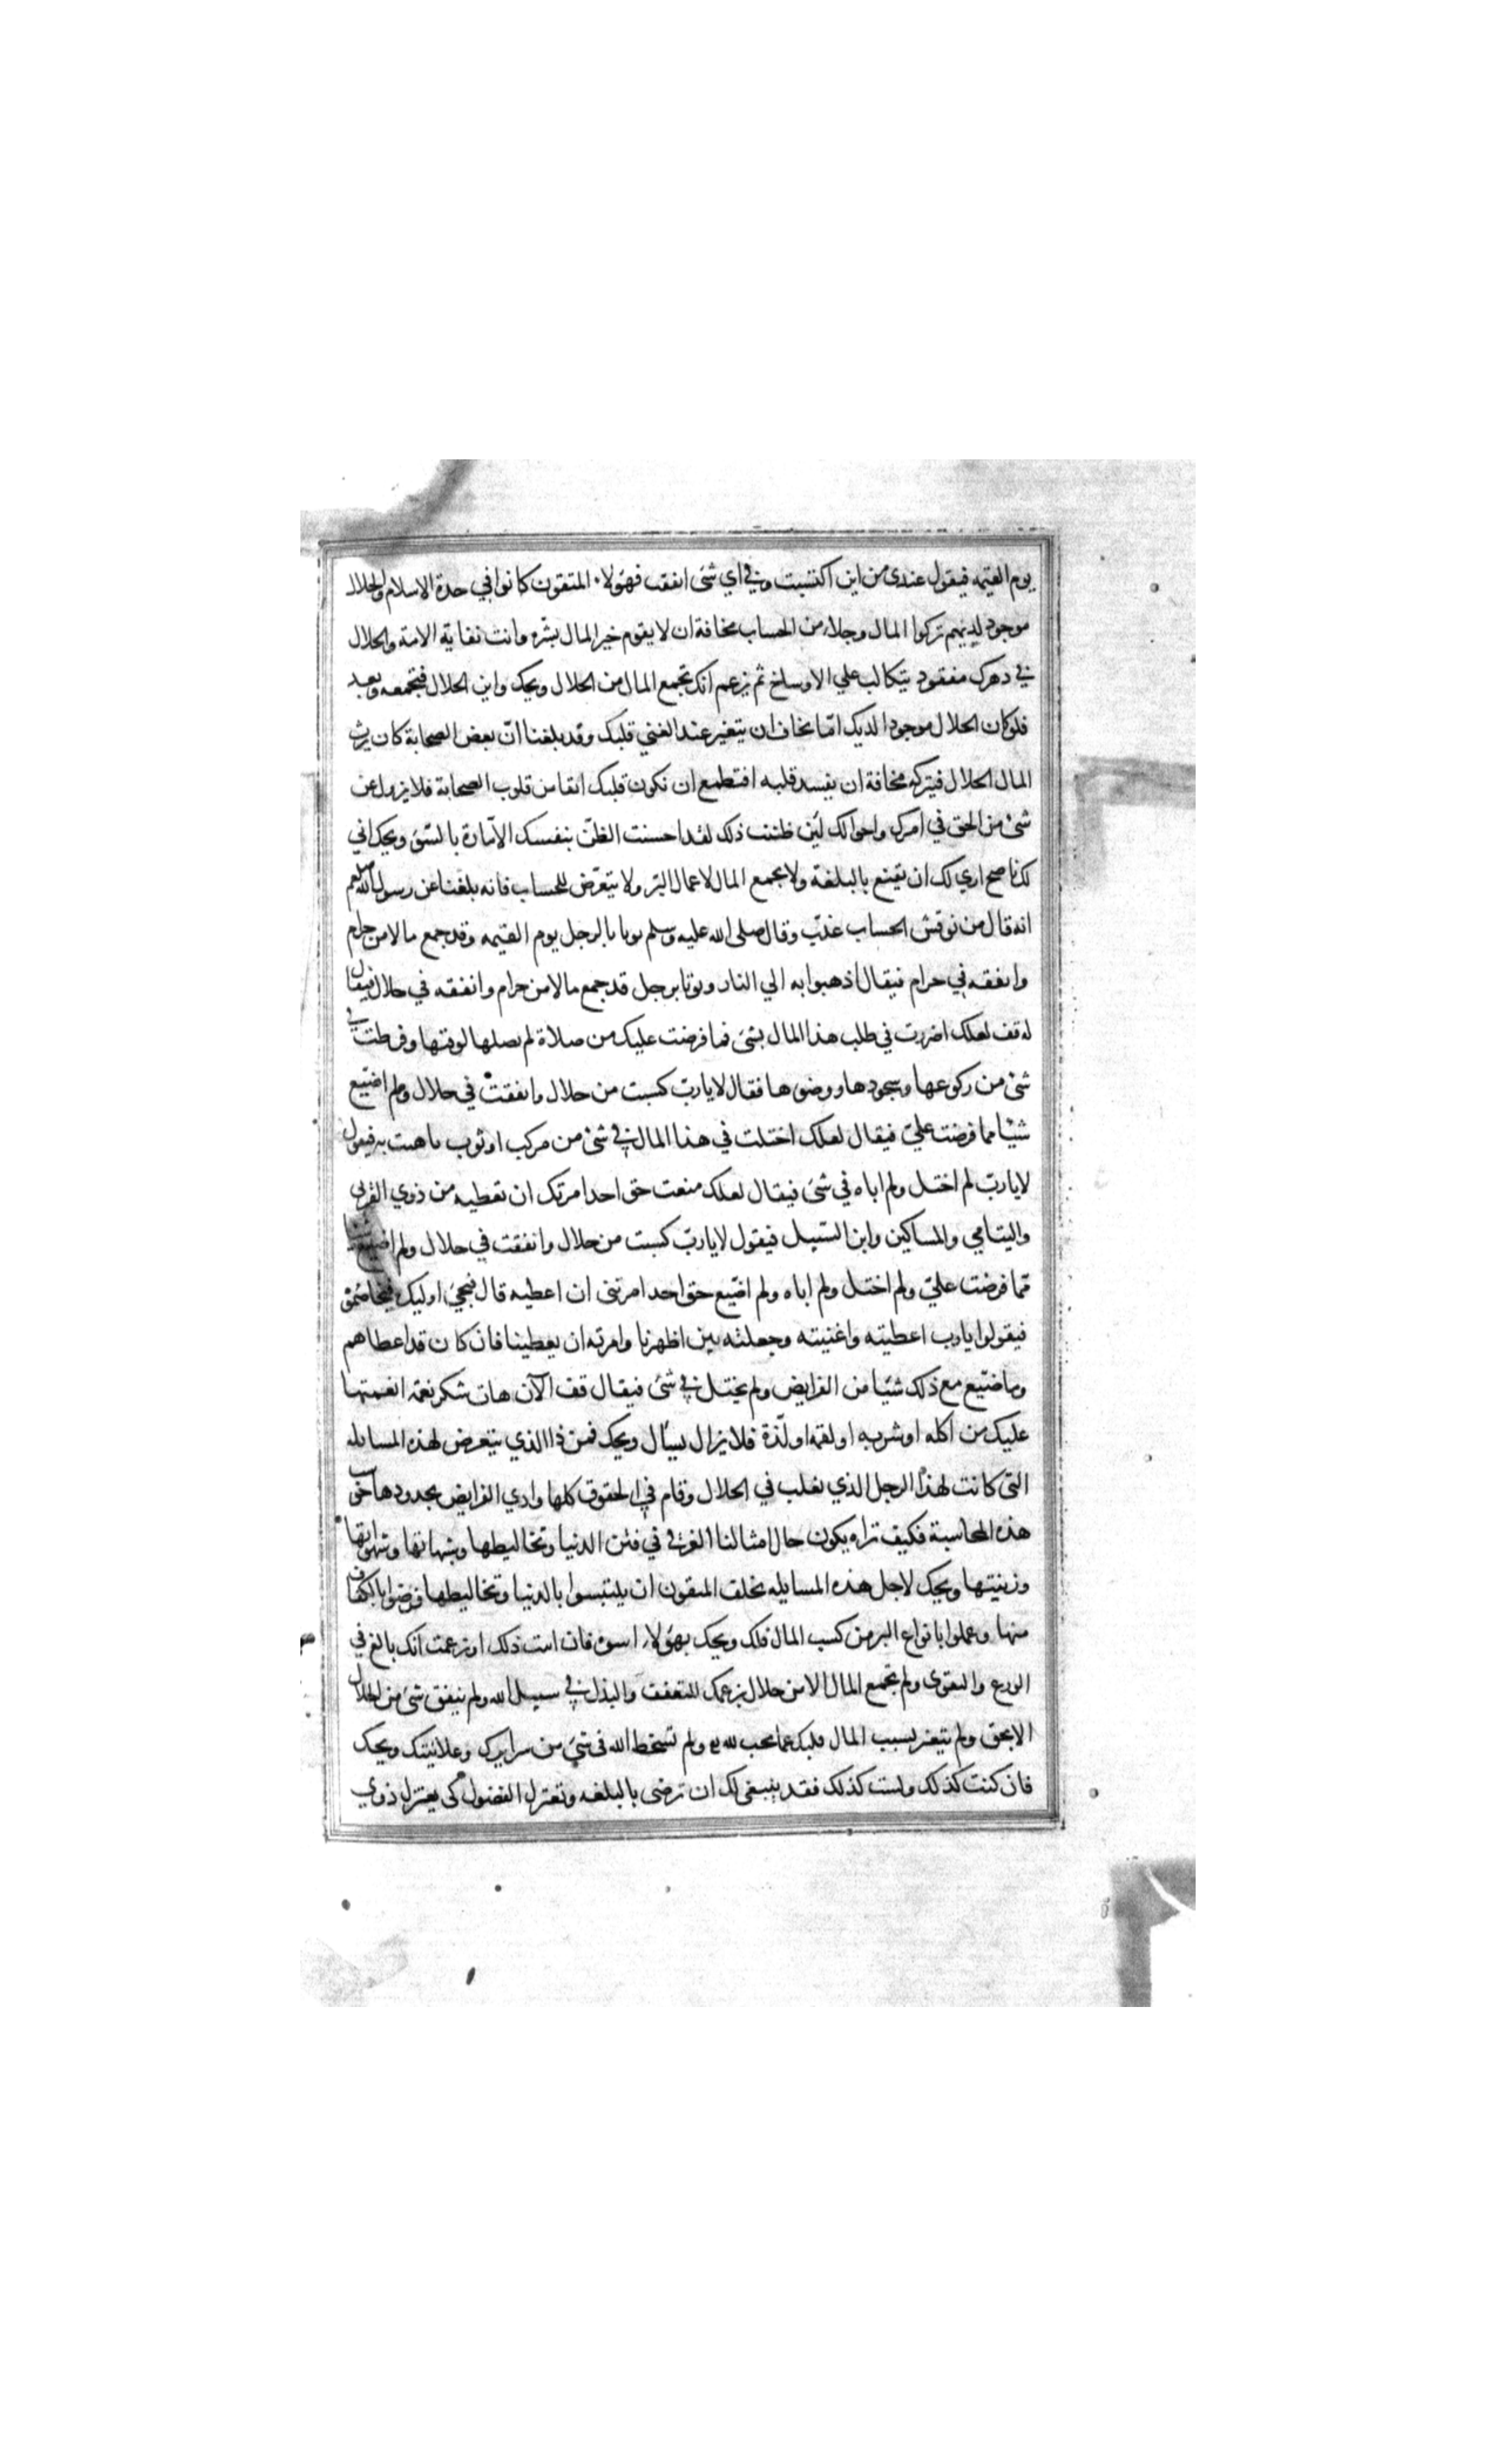 يوم القيمه فيقول عندى من اين اكتسبت وفي اي شئ انفقت فهولاء المتقون كانوا في حدة الاسلام والحلال
موجود لديهم تركوا المال وجلاء من الحساب مخافة ان لا يقوم خير المال بشره وانت نفاية الامة والحلال
في دهرك مفقود يتكالب علي الاوساخ ثم يزعم انك تجمع المال من الحلال ويحك واين الحلال فتجمعه وبعد
فلو كان الحلال موجودا لديك امّا تخاف ان يتغير عند الغني قلبك وقد بلغنا انّ بعض الصحابة كان يرث
المال الحلال فيتركه مخافة ان يفسد قلبه افتطمع ان تكون قلبك اتقا من قلوب الصحابة فلا يزيل عن
شئ من الحق في امرك واحوالك لئن ظننت ذلك لقد احسنت الظنّ بنفسك الامّارة بالسّوء ويحك اني
لك ناصح اري لك ان تقنع بالبلغة ولا تجمع المال لاعمال البرّ ولا يتعرّض للحساب فانه بلغنا عن رسول الله صلعم
انه قال من نوقش الحساب عذّب وقال صلى الله عليه وسلم يوتا بالرجل يوم القيمه وقد جمع مالا من حرام
وانفقه في حرام فيقال اذهبوا به الي النار ويوتا برجل قد جمع مالا من حرام وانفقه في حلال فيقال
له قف لعلك اضررت في طلب هذا المال بشئ فما فرضت عليك من صلاة لم تصلها لوقتها وفرطت في
شئ من ركوعها وسجودها ووضوها فقال لا يا ربّ كسبت من حلال وانفقت في حلال ولم اضيّع
شيّا مما فرضت عليّ فيقال لعلك اختلت في هذا المال في شئ من مركب او ثوب باهيت به فيقول
لا يا ربّ لم اختل ولم اباه في شئ فيقال لعلك منعت حق احد امرتك ان تعطيه من ذوي القربى
واليتامي والمساكين وابن السّبيل فيقول لا يا ربّ كسبت من حلال وانفقت في حلال ولم اضيع شيئا
ممّا فرضت عليّ ولم اختل ولم اباه ولم اضيّع حق احد امرتنى ان اعطيه قال فيجئ اوليك فيخاصمونه
فيقولوا يا رب اعطيته واغنيته وجعلته بين اظهرنا وامرته ان يعطينا فان كان قد اعطاهم
وما ضيّع مع ذلك شيّا من الفرايض ولم يختل في شئ فيقال قف الآن هات شكر نعمة انعمتها
عليك من اكله او شربه او لقمة او لذّة فلا يزال يسأل ويحك فمن ذا الذي يتعرض لهذه المسايله
التى كانت لهذا الرجل الذي تقلب في الحلال وقام في الحقوق كلها وادي الفرايض بحدودها حوسب
هذه المحاسبة فكيف تراه يكون حال امثالنا الغرقي في فتن الدنيا وتخاليطها وشبهاتها وشهواتها
وزينتها ويحك لاجل هذه المسايله يخلف المتقون ان يلتبسوا بالدنيا وتخاليطها فرضوا بالكفاف
منها وعملوا بانواع البر من كسب المال فلك ويحك بهولاء اسوة فان ابيت ذلك او زعمت انك بالغ في
الورع والتقوى ولم تجمع المال الا من حلال بزعمك للتعفف والبذل في سبيل الله ولم ينفق شئ من الحلال
الا بحق ولم يتغير بسبب المال قلبك عما يحب لله ولم تسخط الله فى شئ من سرايرك وعلانيتك ويحك
فان كنت كذلك ولست كذلك فقد ينبغى لك ان ترضى بالبلغه وتعتزل الفضول كى يعتزل ذوي